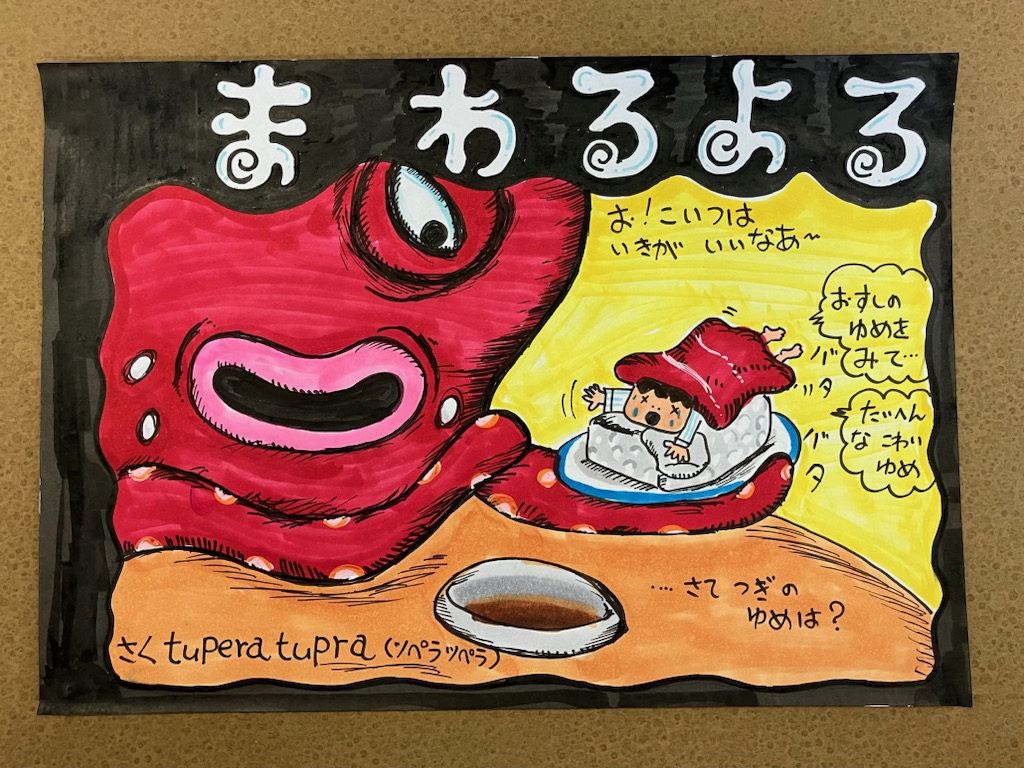 まわるよる
お！こいつは
いきが いいなあ〜
おすしの
ゆめを
みて…
バタッ
たいへん
な こわい
ゆめ
バタ
…. さて つぎの
ゆめは？
さく tupera tupra (ツペラツペラ)